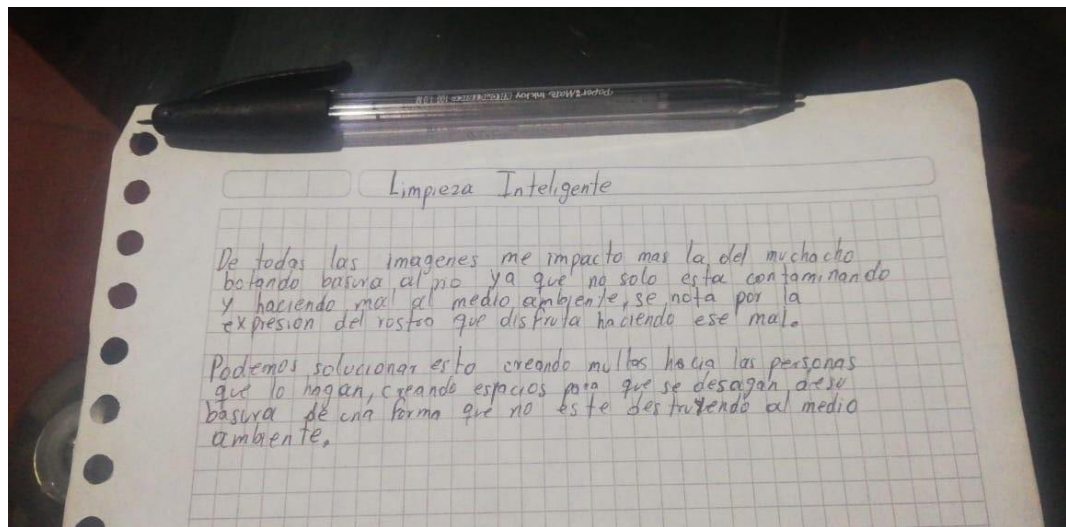 Paper Mate InkJoy
Limpieza Inteligente
De todas las imagenes me impacto mas la del muchacho
botando basura al rio ya que no solo esta contaminando
y haciendo mal al medio ambiente, se nota por la
expresion del rostro que disfruta haciendo ese mal.
Podemos solucionar esto creando multas hacia las personas
que lo hagan, creando espacios para que se desagan de su
basura de una forma que no este destruyendo al medio
ambiente.